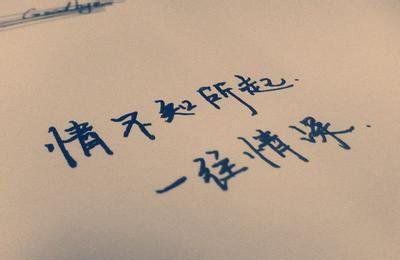 情不知所起.
一往情深.